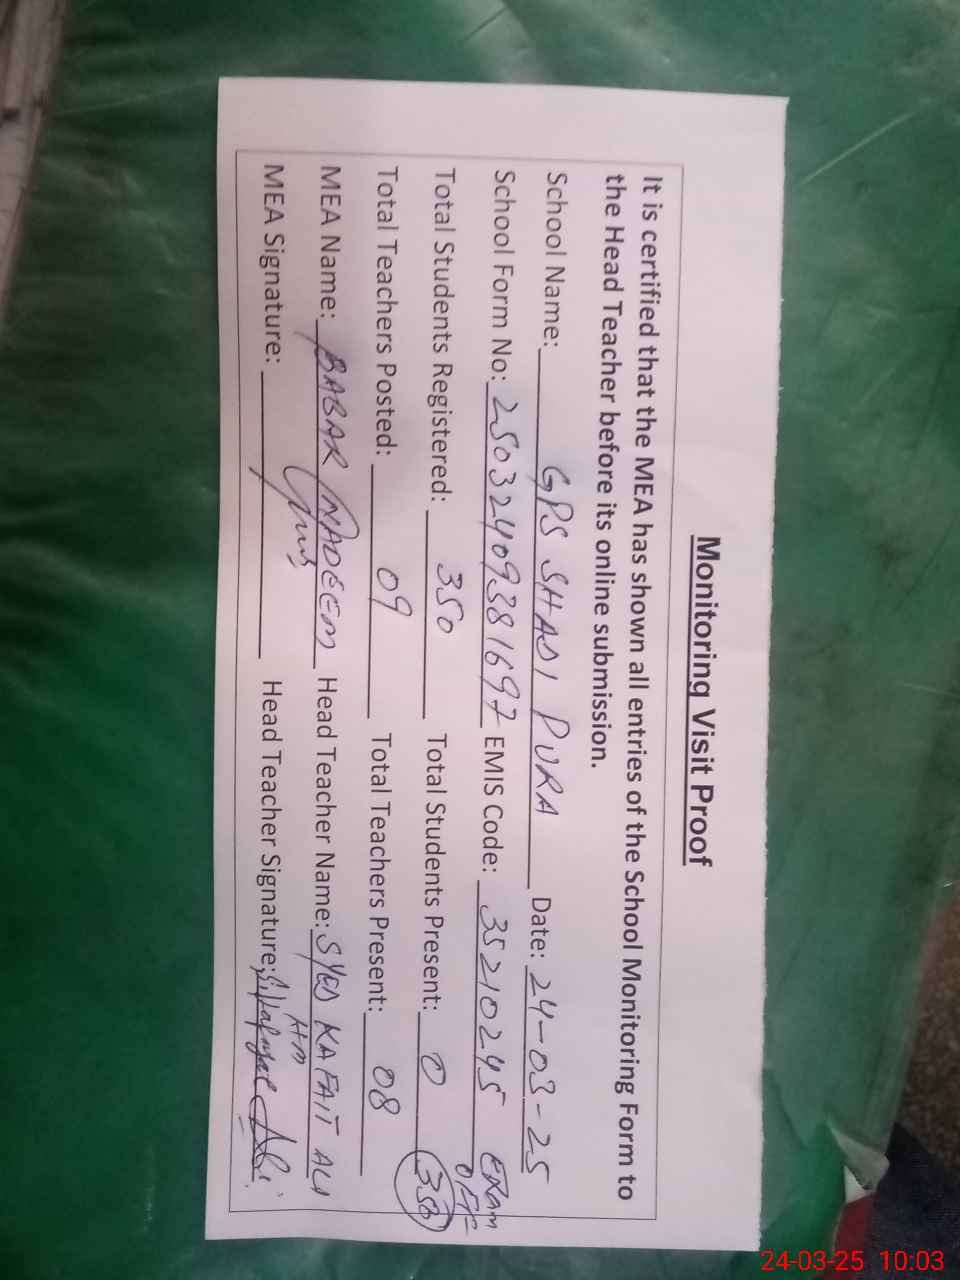 Monitoring Visit Proof
It is certified that the MEA has shown all entries of the School Monitoring Form to
the Head Teacher before its online submission.
School Name: GPS SHADI PURA Date: 24-03-25
School Form No: 25032409381697 EMIS Code: 35210245 EXAM
OFF
Total Students Registered: 350 Total Students Present: 0 350
Total Teachers Posted: 09 Total Teachers Present: 08
MEA Name: BABAR NADEEM Head Teacher Name: SYED KAFAIT ALI
HM
MEA Signature: Head Teacher Signature:
24-03-25 10:03